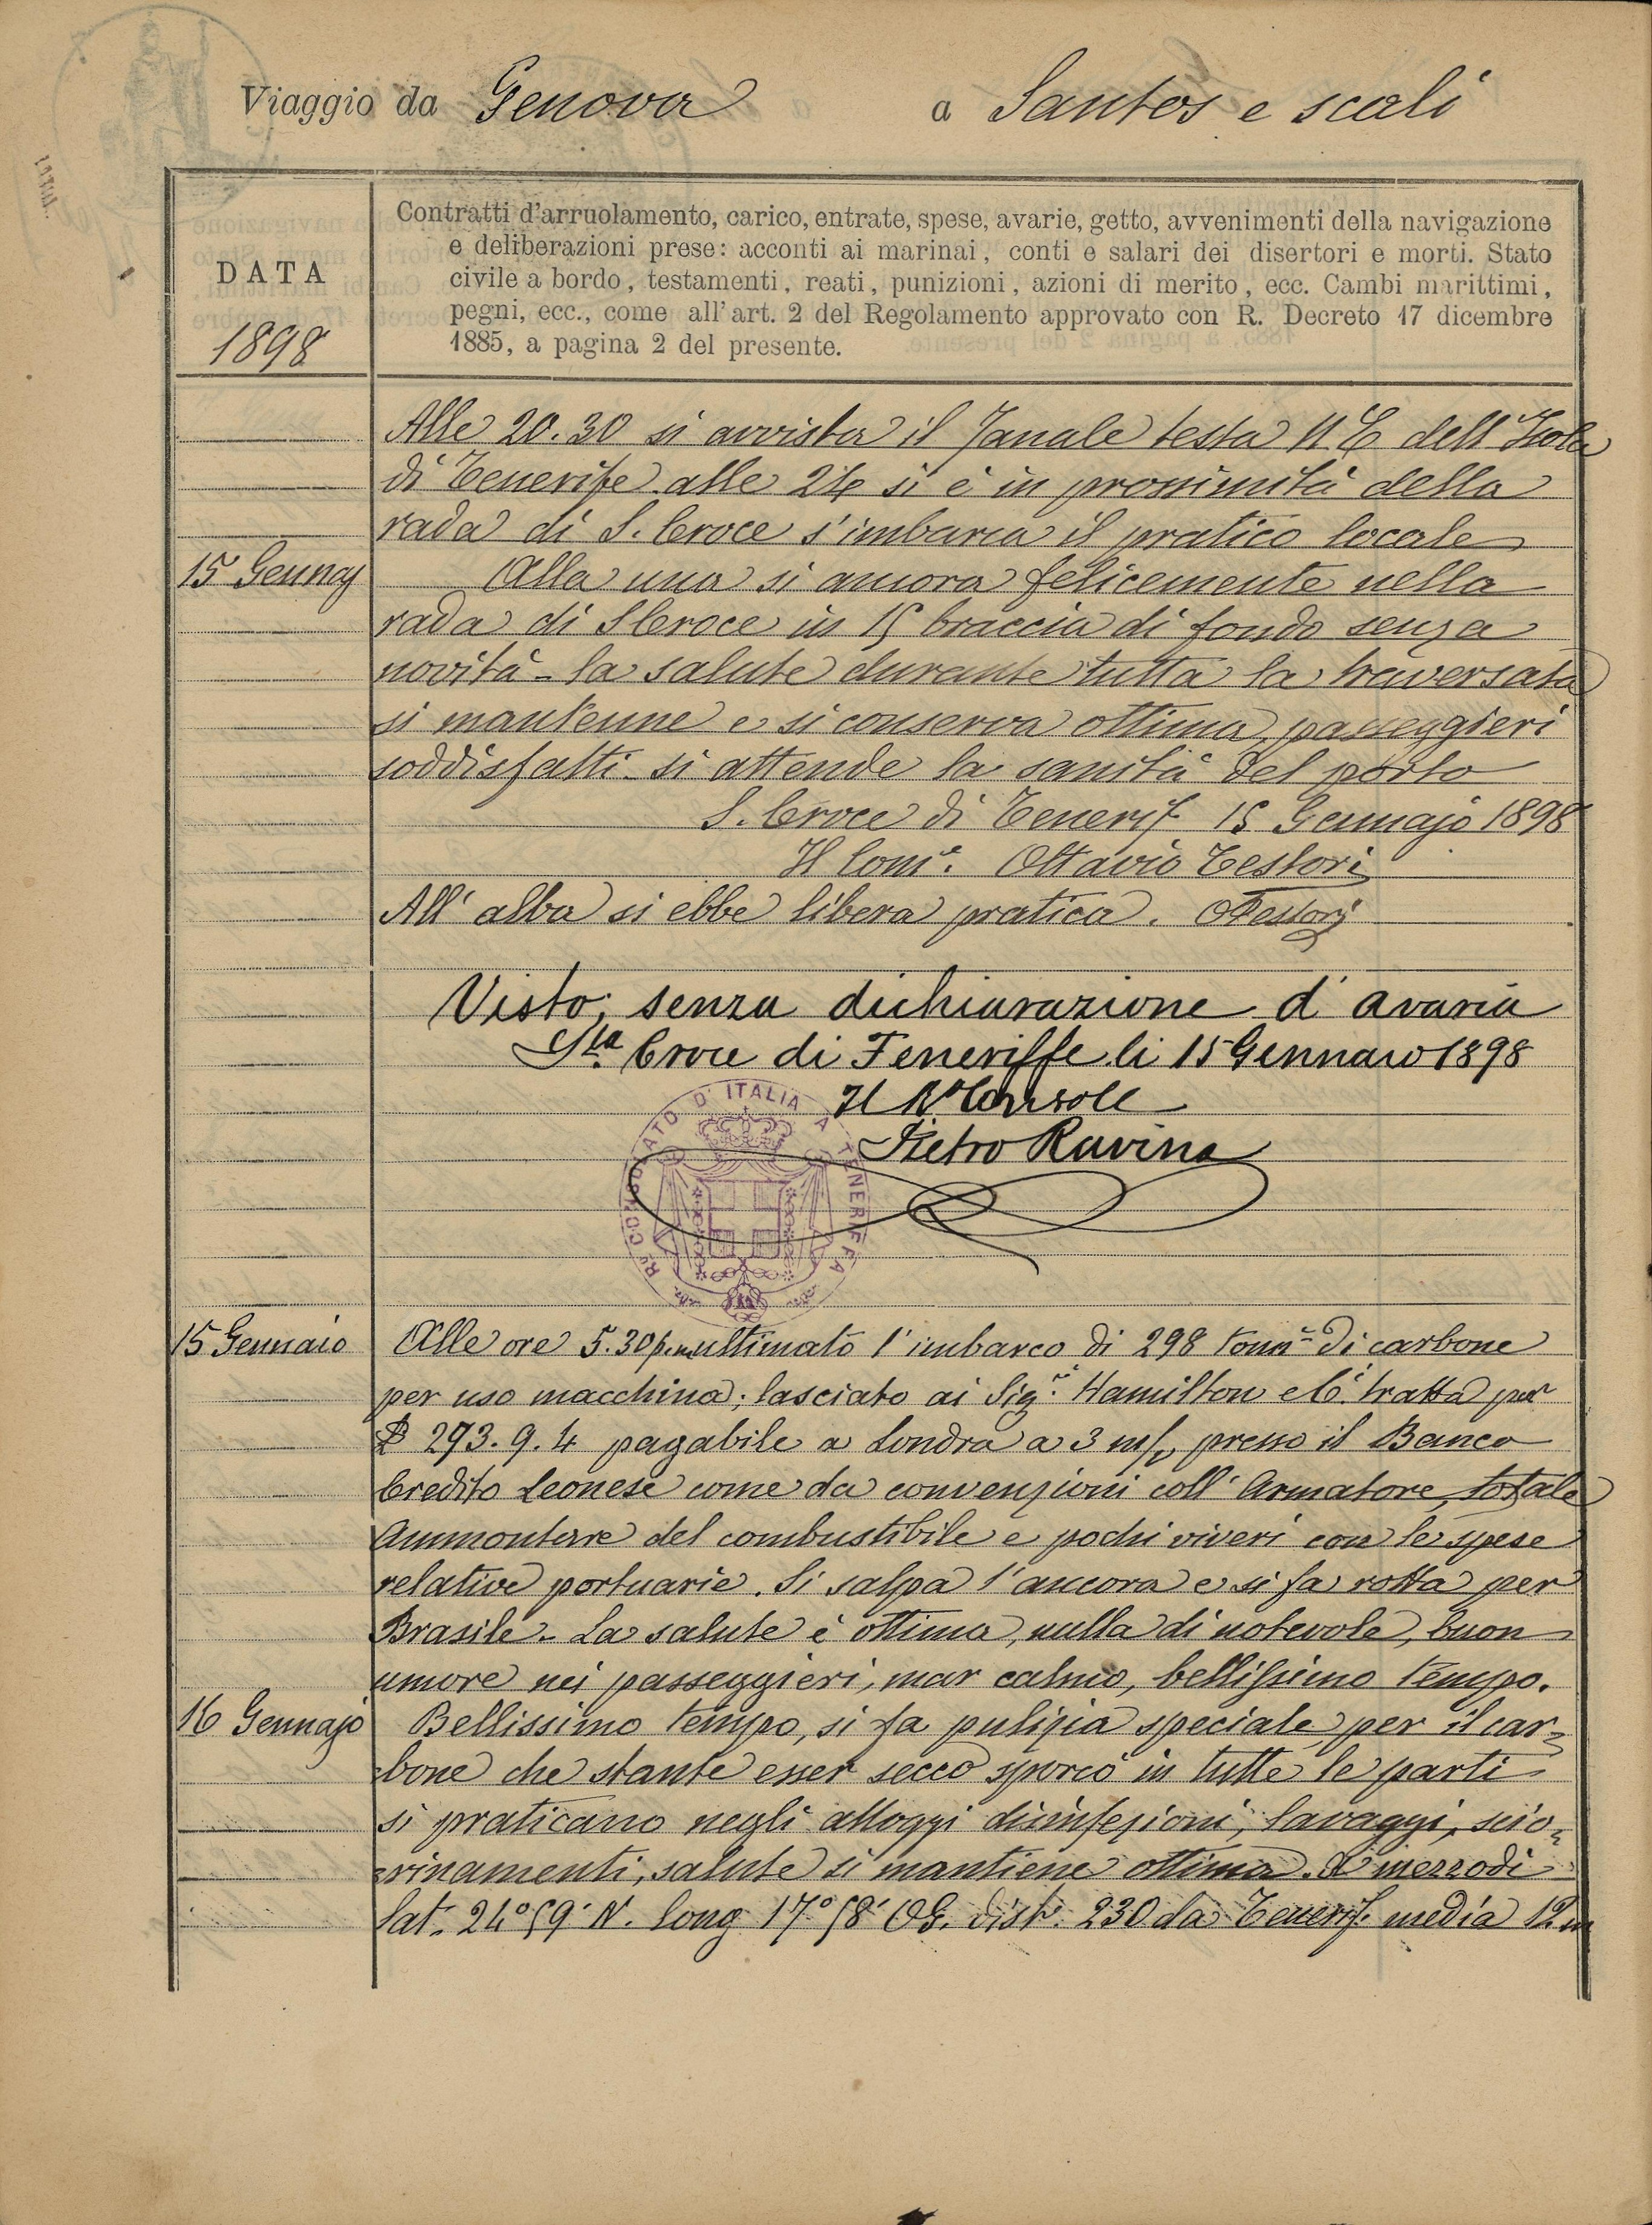 Viaggio da Genova a Santos e scali
DATA
1898
Contratti d'arruolamento, carico, entrate, spese, avarie, getto, avvenimenti della navigazione
e deliberazioni prese: acconti ai marinai, conti e salari dei disertori e morti. Stato
civile a bordo, testamenti, reati, punizioni, azioni di merito, ecc. Cambi marittimi,
pegni, ecc., come all'art. 2 del Regolamento approvato con R. Decreto 17 dicembre
1885, a pagina 2 del presente.
Alle 20.30 si avvista il Fanale testa N E dell'Isola
di Tenerife alle 24 si è in prossimità della
rada di S. Croce s'imbarca il pratico locale
15 Gennaj Alla una si ancora felicemente nella
rada di S Croce in 15 braccia di fondo senza
novità - la salute durante tutta la traversata
si mantenne e si conserva ottima, passeggieri
soddisfatti - si attende la sanità del porto
S. Croce di Tenerif 15 Gennajo 1898
Il Com.e Ottavio Testori
All'alba si ebbe libera pratica. OTestori
Visto, senza dichiarazione d'avaria
Sta Croce di Teneriffe li 15 Gennaio 1898
Il Console
Pietro Ravina
R. CONSOLATO D'ITALIA A TENERIFFA
15 Gennaio Alle ore 5.30 p.m ultimato l'imbarco di 298 tonn.e di carbone
per uso macchina; lasciato ai Sig.r Hamilton e C. tratta per
£ 273.9.4 pagabile a Londra a 3 m/ presso il Banco
Credito Leonese come da convenzioni coll'Armatore, totale
Ammontare del combustibile e pochi viveri con le spese
relative portuarie. Si salpa l'ancora e si fa rotta per
Brasile - La salute è ottima, nulla di notevole, buon
umore nei passeggieri, mar calmo, bellissimo tempo.
16 Gennajo Bellissimo tempo, si fa pulizia speciale per il car=
bone che stante esser secco sporcò in tutte le parti
si praticano negli alloggi disinfezioni, lavaggi, scio=
rinamenti, salute si mantiene ottima. A mezzodì
Lat. 24° 59' N. long 17° 58' OG. dist. 230 da Tenerif. media 12 m